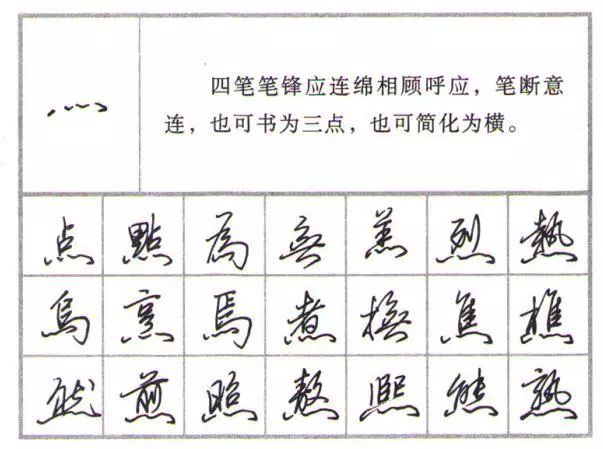 四笔笔锋应连绵相顾呼应，笔断意
连，也可书为三点，也可简化为横。
点 點 為 無 羔 烈 熱
烏 烹 焉 煮 橅 焦 樵
然 煎 照 熬 熙 熊 熟